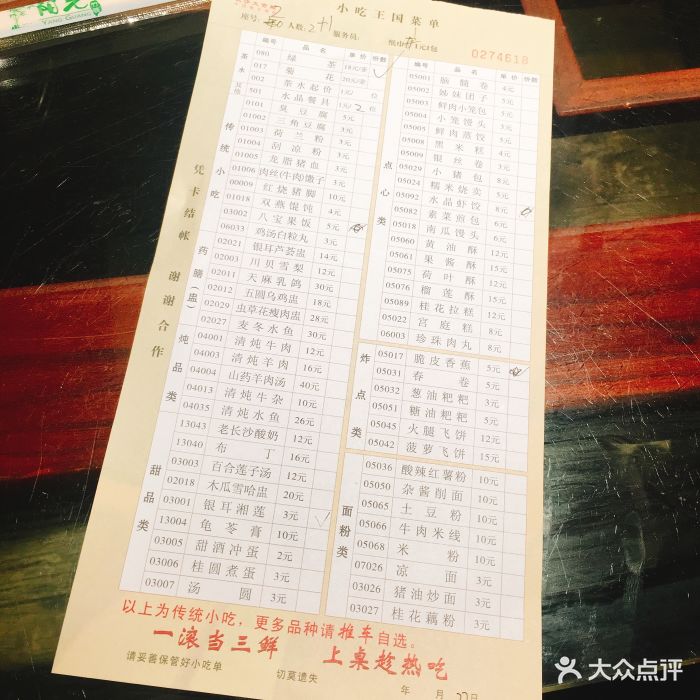 阳光
YANG GUANG
小吃王国菜单
座号: 人数: 2+1 服务员: 纸巾 1元1包
0274618
编号 品名 单价 份数
茶水其他
080 绿茶 18元/壶
017 菊花 20元/壶
002 茶水起价 1元/位
501 水晶餐具 1元/2位
传统小吃
0101 臭豆腐 5元
01002 三角豆腐 3元
01003 荷兰粉 3元
01004 刮凉粉 3元
01005 龙脂猪血 3元
01006 肉丝(牛肉)馓子 3元
00009 红烧猪脚 10元
01018 双燕馄饨 4元
03002 八宝果饭 5元
06033 鸡汤白粒丸 3元
药膳(盅)
02021 银耳芦荟盅 14元
02003 川贝雪梨 12元
02011 天麻乳鸽 30元
02012 五圆乌鸡盅 18元
02029 虫草花瘦肉盅 28元
02027 麦冬水鱼 30元
炖品类
04001 清炖牛肉 12元
04003 清炖羊肉 16元
04004 山药羊肉汤 40元
04013 清炖牛杂 10元
04035 清炖水鱼 26元
甜品类
13043 老长沙酸奶 12元
13040 布丁 16元
03003 百合莲子汤 12元
02018 木瓜雪哈盅 20元
03001 银耳湘莲 3元
13004 龟苓膏 10元
03005 甜酒冲蛋 2元
03006 桂圆煮蛋 3元
03007 汤圆 3元
编号 品名 单价 份数
点心类
05001 脑髓卷 4元
05002 姊妹团子 5元
05003 鲜肉小笼包 5元
05004 小笼馒头 3元
05005 鲜肉蒸饺 5元
05008 黑米糕 4元
05009 银丝卷 3元
05029 小猪包 8元
05024 糯米烧卖 5元
05092 水晶虾饺 8元
05082 素菜煎包 6元
05018 南瓜馒头 6元
05060 黄油酥 12元
05061 果酱酥 15元
05075 荷叶酥 12元
05076 榴莲酥 15元
05089 桂花拉糕 12元
05022 宫庭糕 8元
06003 珍珠肉丸 8元
炸点类
05017 脆皮香蕉 5元
05031 春卷 5元
05032 葱油粑粑 3元
05051 糖油粑粑 5元
05045 火腿飞饼 12元
05042 菠萝飞饼 15元
面粉类
05036 酸辣红薯粉 10元
05050 杂酱削面 10元
05065 土豆粉 10元
05066 牛肉米线 10元
05068 米粉 10元
07026 凉面 3元
03026 猪油炒面 3元
03027 桂花藕粉 3元
凭卡结帐 谢谢合作
以上为传统小吃，更多品种请推车自选。
一滚当三鲜 上桌趁热吃
请妥善保管好小吃单 切莫遗失 年 月 22日
大众点评